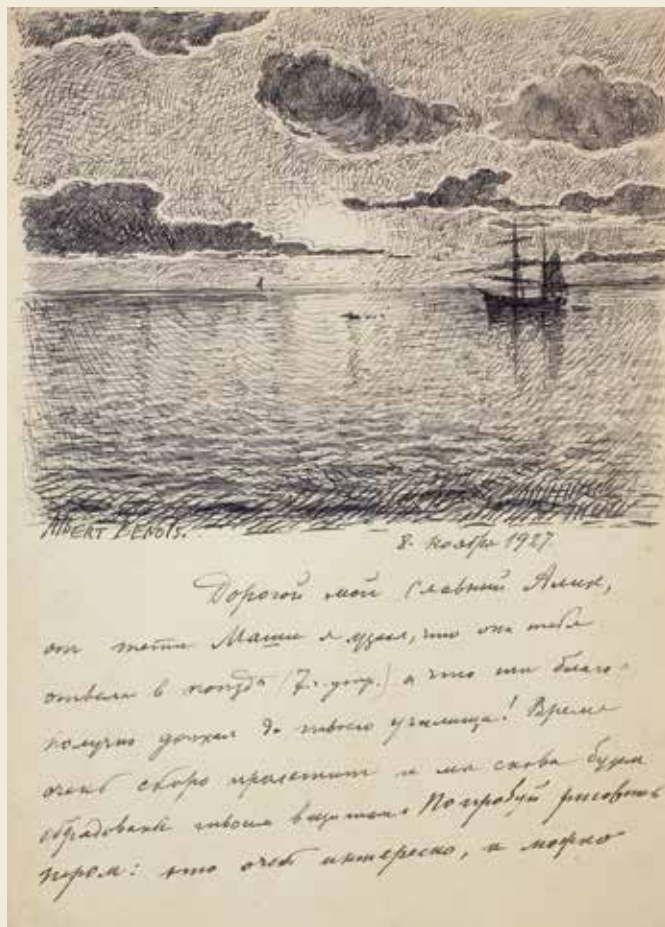 ALBERT BENOIS.
8. ноября 1927
Дорогой мой славный Алик,
от тети Маши я узнал, что она тебя
отвела в поезд (7 ч. утр.) а что ты благо-
получно доехал до твоего училища! Время
очень скоро пролетит и мы снова будем
обрадованы твоим Попробуй рисовать
пером: это очень интересно, и можно